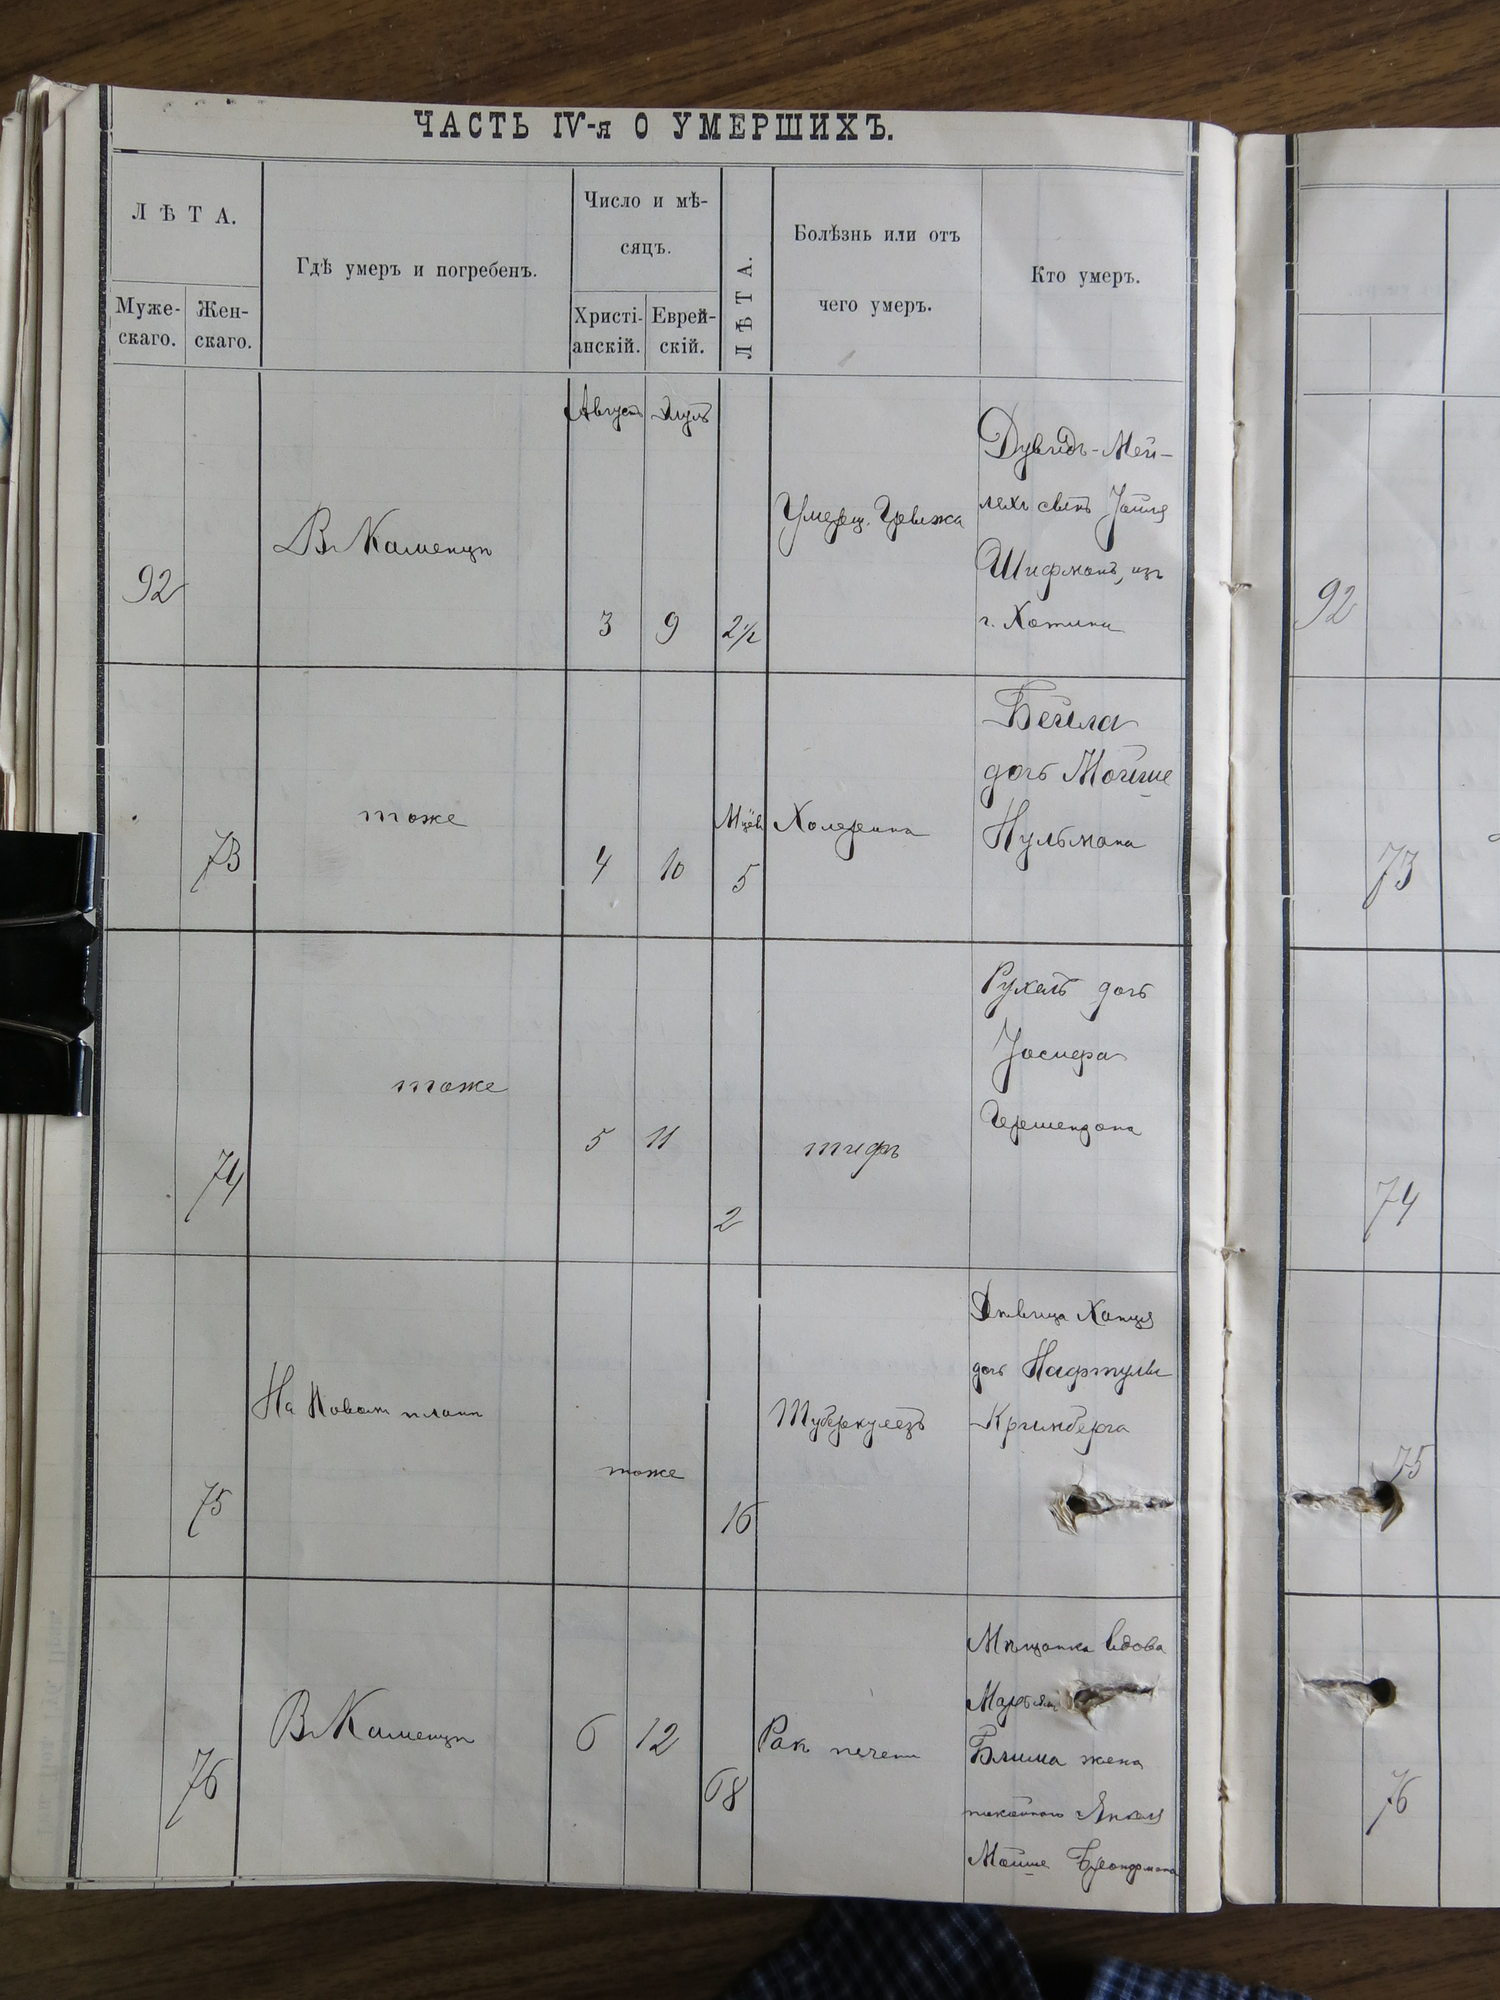 ЧАСТЬ IV-я О УМЕРШИХЪ.
ЛѢТА.
Муже-
скаго.
Жен-
скаго.
Гдѣ умеръ и погребенъ.
Число и мѣ-
сяцъ.
Христі-
анскій.
Еврей-
скій.
ЛѢТА.
Болѣзнь или отъ
чего умеръ.
Кто умеръ.
92
Въ Каменцѣ
Августъ
Элулъ
3
9
2 1/2
Грыжа
Дувидъ-Мей-
лехъ сынъ Іойля
Шифманъ, изъ
г. Хотина
92
73
тоже
4
10
Мцѣв
5
Холерина
Бейла
дочь Мойше
Нульмана
73
74
тоже
5
11
2
тифъ
Рухель дочь
Іосифа
74
75
На Новомъ планѣ
тоже
16
Туберкулезъ
Дѣвица Ханця
дочь Нафтулы
Кринберга
75
76
Въ Каменцѣ
6
12
68
Ракъ печени
Мѣщанка вдова
Марьям
Блима жена
покойнаго Янкеля
Мойше
76